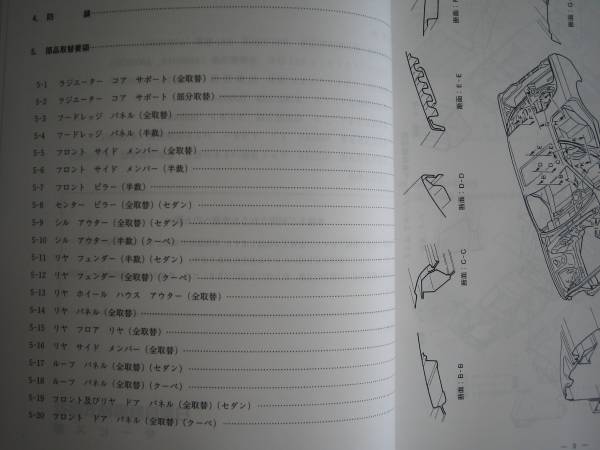 4. 防 錆
5. 部品取替要領
5-1 ラジエーター コア サポート(全取替)
5-2 ラジエーター コア サポート(部分取替)
5-3 フードレッジ パネル(全取替)
5-4 フードレッジ パネル(半裁)
5-5 フロント サイド メンバー(全取替)
5-6 フロント サイド メンバー(半裁)
5-7 フロント ピラー(半裁)
5-8 センター ピラー(全取替)(セダン)
5-9 シル アウター(全取替)(セダン)
5-10 シル アウター(半裁)(クーペ)
5-11 リヤ フェンダー(半裁)(セダン)
5-12 リヤ フェンダー(全取替)(クーペ)
5-13 リヤ ホイール ハウス アウター(全取替)
5-14 リヤ パネル(全取替)
5-15 リヤ フロア リヤ(全取替)
5-16 リヤ サイド メンバー(全取替)
5-17 ルーフ パネル(全取替)(セダン)
5-18 ルーフ パネル(全取替)(クーペ)
5-19 フロント及びリヤ ドア パネル(全取替)(セダン)
5-20 フロント ドア パネル(全取替)(クーペ)
断面:F
断面:G
断面:E-E
断面:D-D
断面:C-C
断面:B-B